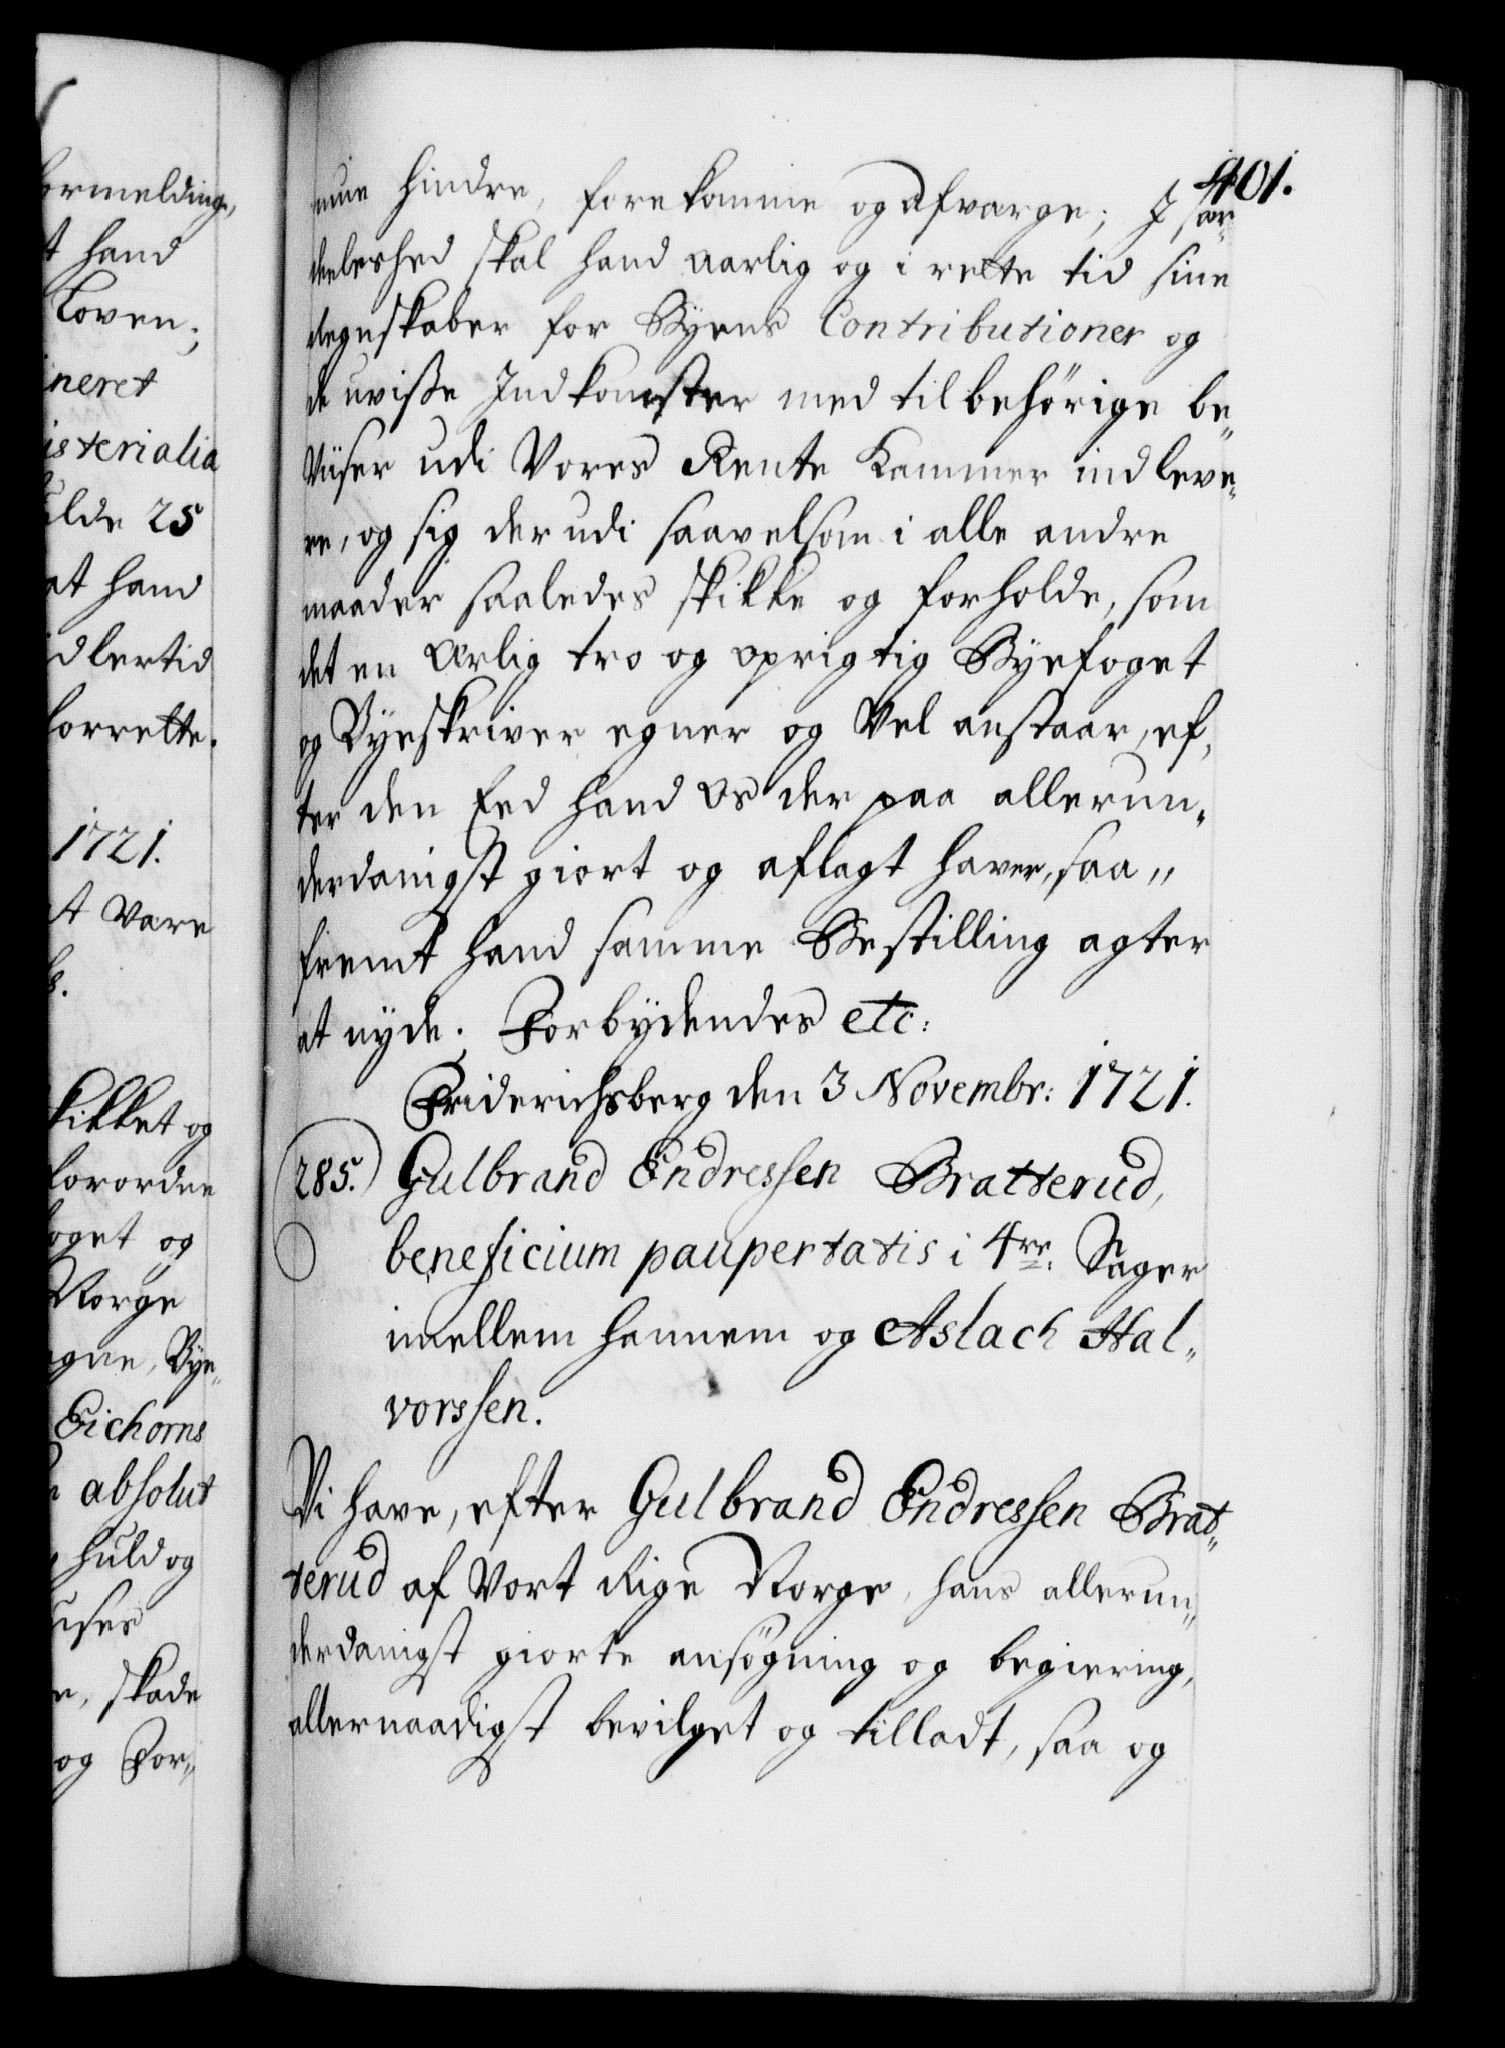 ormelding,
t hand
Loven;
ineret
isterialia
ulde 25
at hand
idlertid
forrette.
1721.
at være
skikket og
forordne
foget og
Norge
egne, Bye„
Eichorns
absolut
huld og
, skade
og For„
401.
hindre, forekomme og afværge; I sær„
deeleshed skal hand aarlig og i rette tid sine
Regnskaber for Byens Contributioner og
de uvisse Indkomster med tilbehörige be„
Viiser udi Vores Rente Kammer indleve„
re, og sig der udi saavelsom i alle andre
maader saaledes skikke og forholde, som
det en ærlig tro og oprigtig Byefoget
og Byeskriver egner og Vel anstaar, ef„
ter den Eed hand os der paa allerun„
derdanigst giort og aflagt haver, saa„
fremt hand samme Bestilling agter
at nyde. Forbydendes etc:
Friderichsberg den 3 Novembr: 1721.
285. Gulbrand Endressen Bratterud,
beneficium paupertatis i 4re. Sager
imellem hannem og Aslach Hal„
vorssen.
Vi have, efter Gulbrand Endressen Brat„
terud af Vort Rige Norge, hans allerun„
derdanigst giorte ansögning og begiering,
allernaadigst bevilget og tilladt, saa og